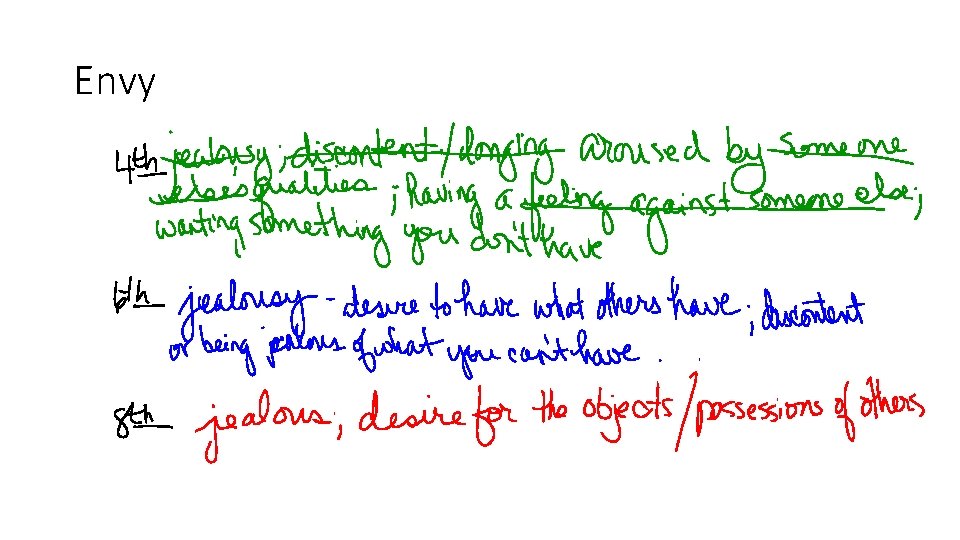 Envy
4th jealousy; discontent/longing aroused by someone
elses qualities; having a feeling against someone else;
wanting something you don't have
6th jealousy - desire to have what others have; discontent
or being jealous of what you can't have.
8th jealous; desire for the objects/possessions of others